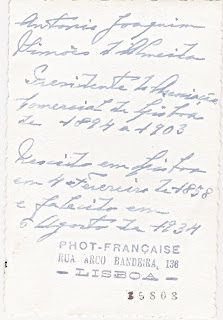 Antonio Joaquim
Simões d'Almeida
Presidente da Associação
Comercial de Lisboa
de 1894 a 1903
Nascido em Lisboa
em 4 Fevereiro de 1858
e falecido em
Agosto de 1934
PHOT-FRANÇAISE
RUA ARCO BANDEIRA, 136
- LISBOA -
35803